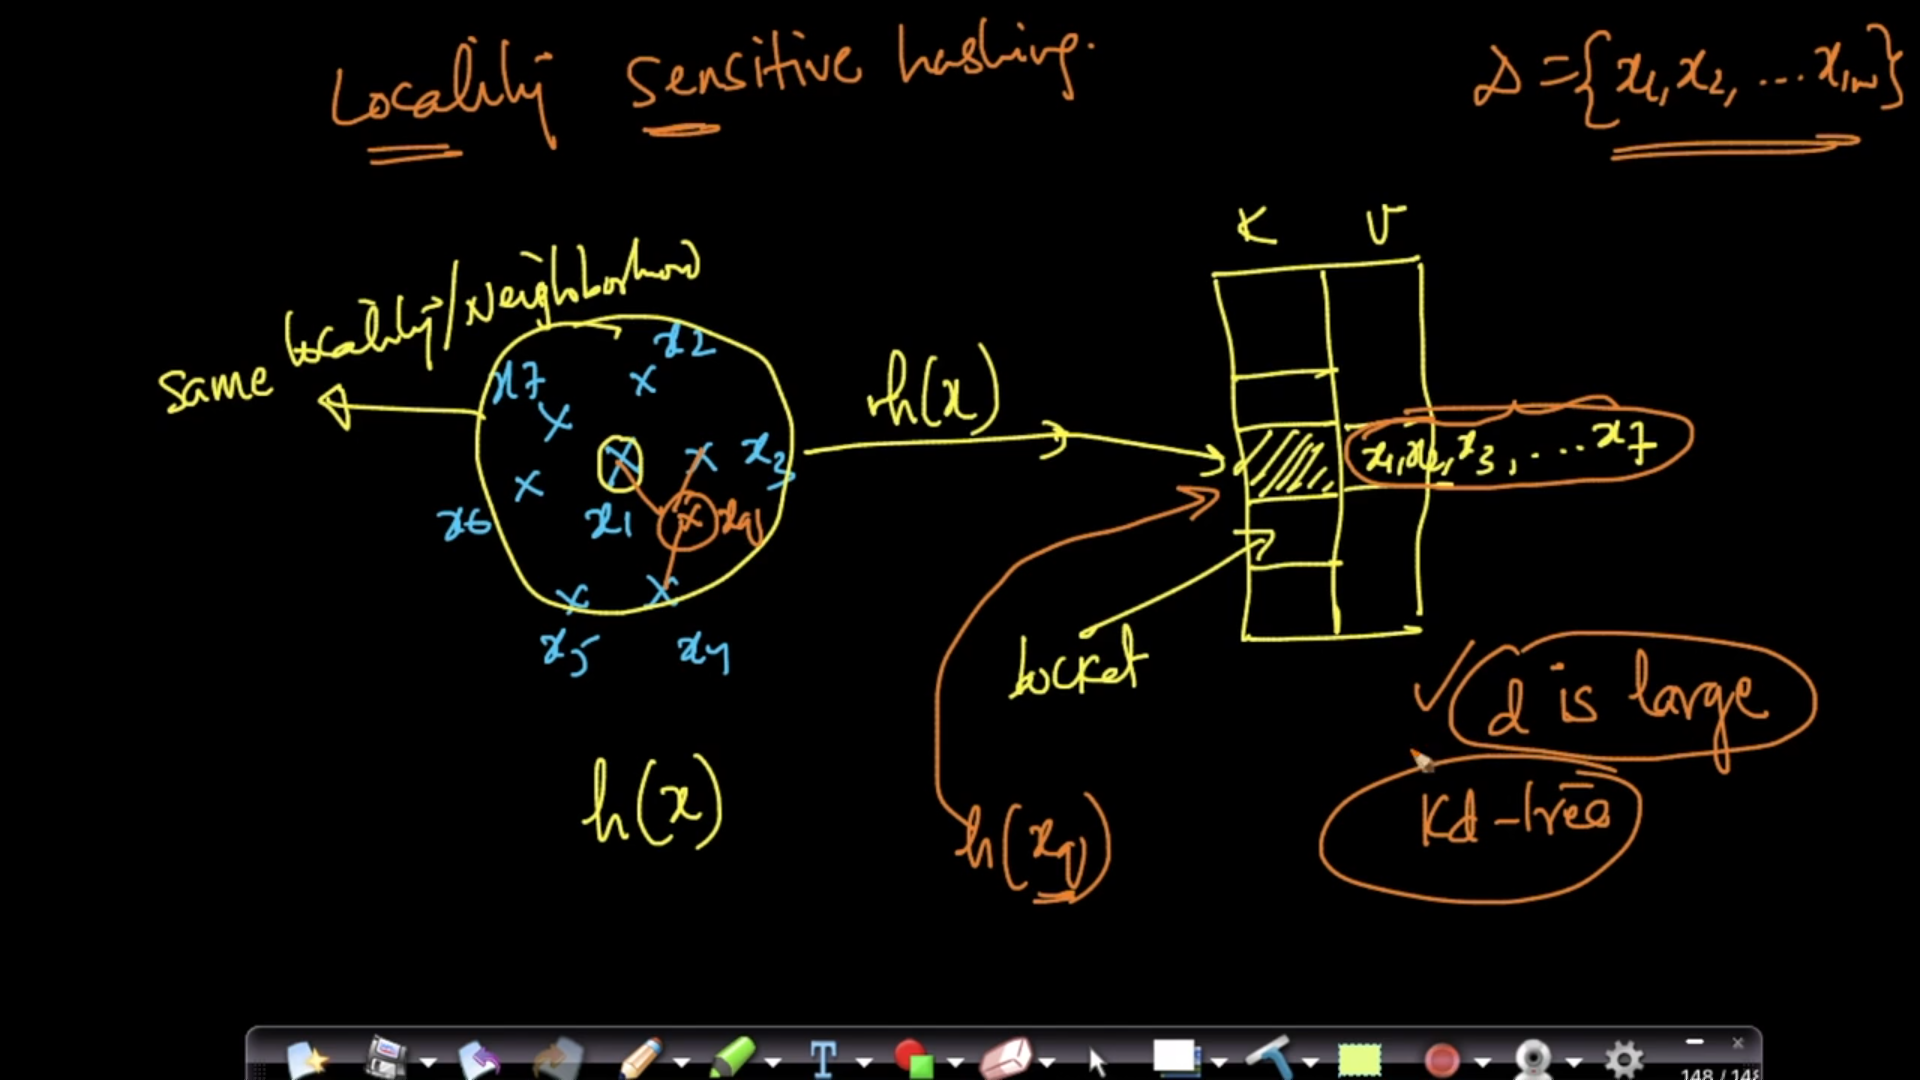 Locality Sensitive hashing.
D = {x1, x2, ... x1m}
K V
Same locality/Neighborhood
x7 x2
x3
x6 x1 xq
x5 x4
h(x)
x1, x2, x3, ... x7
bucket
d is large
h(x)
h(xq)
Kd-tree
148 / 148